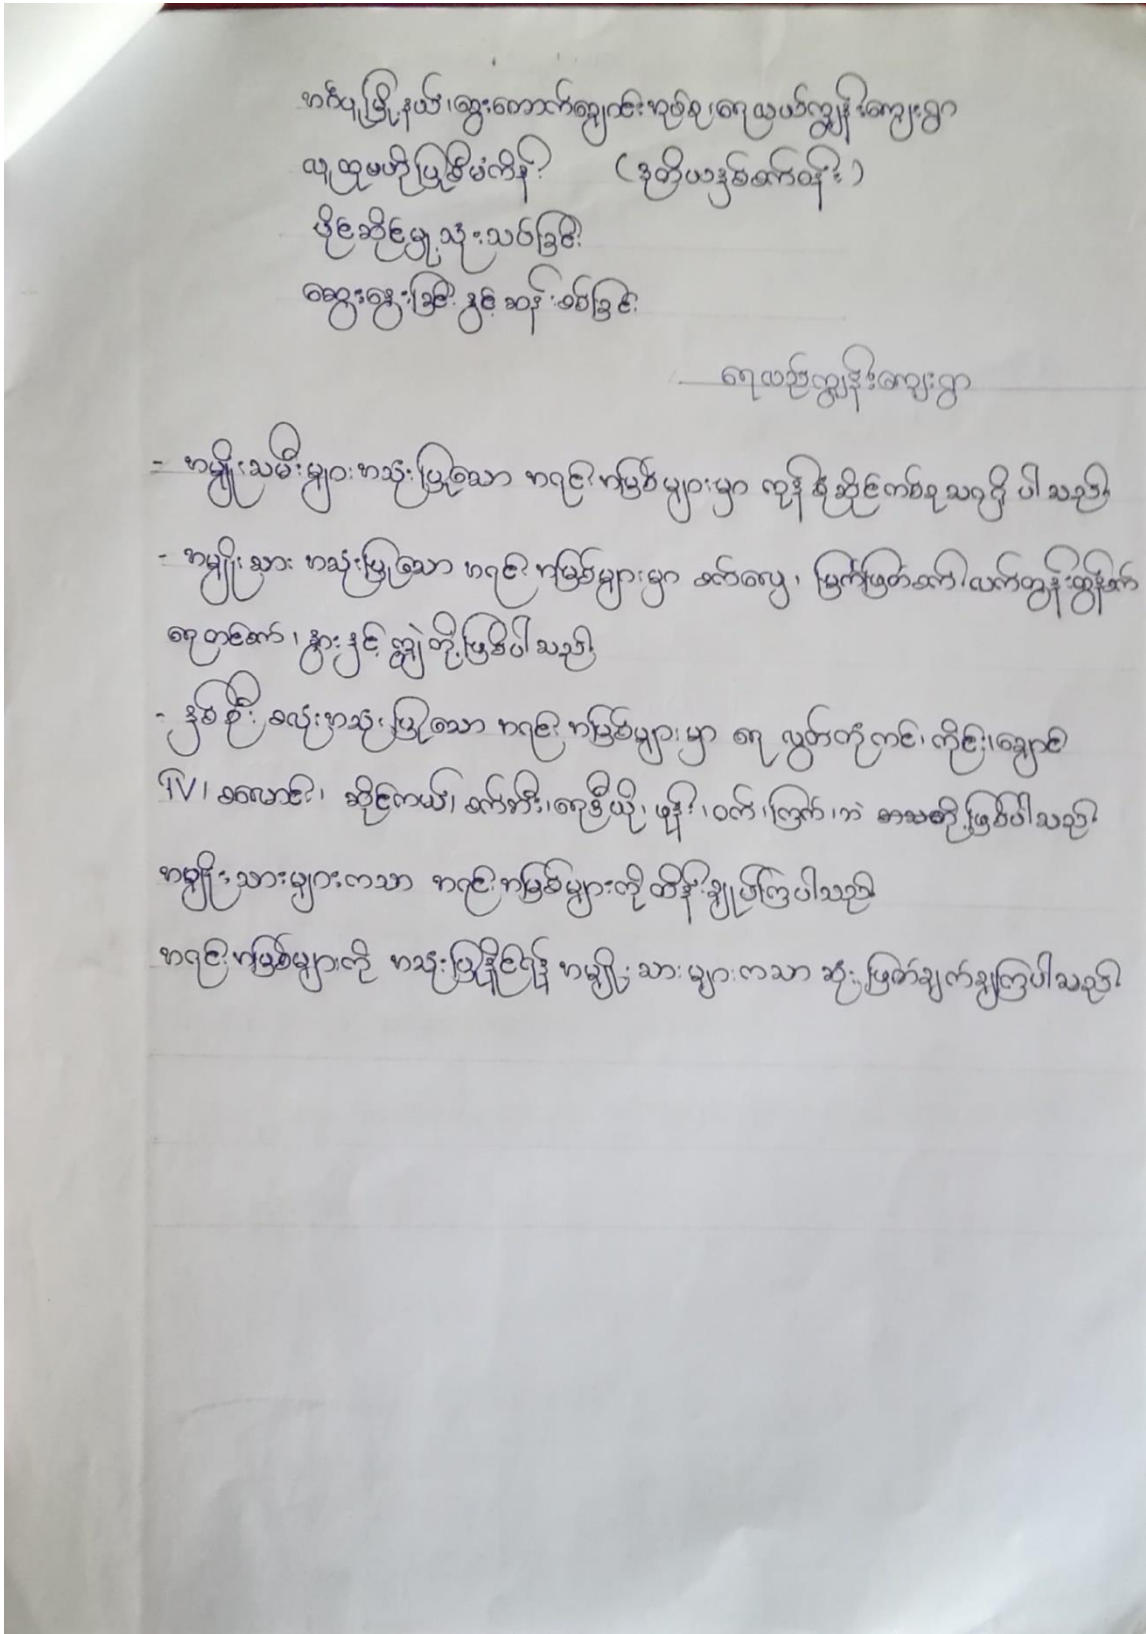 အင်္ဂပူမြို့နယ်၊ ဆွေးတောက်ချောင်းအုပ်စု၊ ရေလယ်ကျွန်းကျေးရွာ
လူထုဗဟိုပြုစီမံကိန်း (ဒုတိယနှစ်ဝက်ဝန်း)
ပိုင်ဆိုင်မှု့သုံးသပ်ခြင်း
ဆွေးနွေးခြင်းနှင့် ဆန်းစစ်ခြင်း
ရေလည်ကျွန်းကျေးရွာ
- အမျိုးသမီးများ အသုံးပြုသော အရင်းအမြစ်များမှာ ကုန်စုံဆိုင်တစ်ခုသာရှိပါသည်။
- အမျိုးသား အသုံးပြုသော အရင်းအမြစ်များမှာ စက်လှေ၊ မြက်ဖြတ်စက်၊ လက်တွန်းထွန်စက်
ရေတင်စက်၊ နွားနှင့် ကျွဲတို့ဖြစ်ပါသည်။
- နှစ်ဦး စလုံးအသုံးပြုသော အရင်းအမြစ်များမှာ ရေ လွတ်တိုကင်၊ ကိုင်း၊ ချောင်
TV၊ စလောင်း၊ ဆိုင်ကယ်၊ စက်ဘီး၊ ရေဒီယို၊ ဖုန်း၊ ဝက်၊ ကြက်၊ ဘဲ စသတို့ဖြစ်ပါသည်။
အမျိုးသားများကသာ အရင်းအမြစ်များကိုထိန်းချုပ်ကြပါသည်။
အရင်းအမြစ်များကို အသုံးပြုနိုင်ရန် အမျိုးသားများကသာ ဆုံးဖြတ်ချက်ချကြပါသည်။